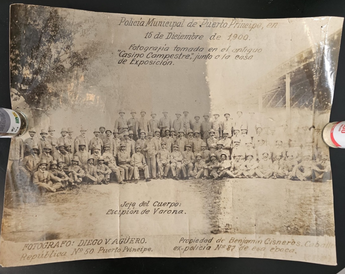 Policía Municipal de Puerto Príncipe, en
16 de Diciembre de 1900.
Fotografía tomada en el antiguo
"Casino Campestre", junto a la casa
de Exposición.
Jefe del Cuerpo:
Escipión de Varona.
FOTOGRAFO: DIEGO V. AGÜERO.
República Nº 50. Puerto Príncipe.
Propiedad de Benjamín Cisneros
ex policía Nº 47 de esa época.